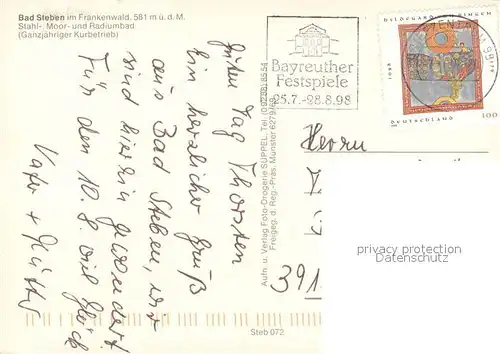 Bad Steben im Frankenwald. 581 m ü. d. M.
Stahl-, Moor- und Radiumbad
(Ganzjähriger Kurbetrieb)
Bayreuther
Festspiele
25.7.-28.8.98
HILDEGARD BINGEN
1098
deutschland 100
Guten Tag Thorsten
Ein herzlicher Gruß
aus Bad Steben, wir
sind hierin gewandert
Für den 10. 8. viel Glück
Vater + Mutter
Aufn. u. Verlag Foto-Drogerie SÜPPEL, Tel. (09288) 8554
Freigeg. d. Reg.-Präs. Münster 6279/83
Herrn
391
privacy protection
Datenschutz
Steb 072